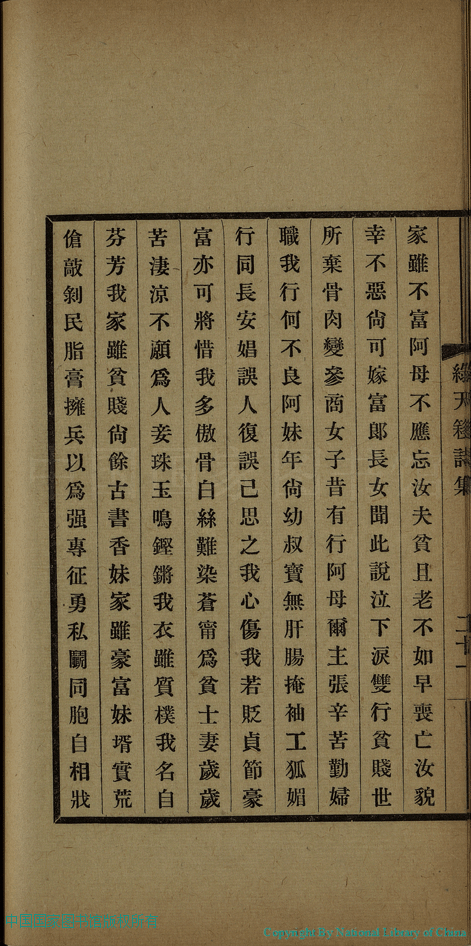 家雖不富阿母不應忘汝夫貧且老不如早喪亡汝貌
幸不惡尙可嫁富郞長女聞此說泣下淚雙行貧賤世
所棄骨肉變參商女子昔有行阿母爾主張辛苦勤婦
職我行何不良阿妹年尙幼叔寶無肝腸掩袖工狐媚
行同長安娼誤人復誤己思之我心傷我若貶貞節豪
富亦可將惜我多傲骨白絲難染蒼甯爲貧士妻歲歲
苦淒涼不願爲人妾珠玉鳴鏗鏘我衣雖質樸我名自
芬芳我家雖貧賤尙餘古書香妹家雖豪富妹壻實荒
傖敲剝民脂膏擁兵以爲强專征勇私鬭同胞自相戕
天籟詩集
二十一
Copyright By National Library of China